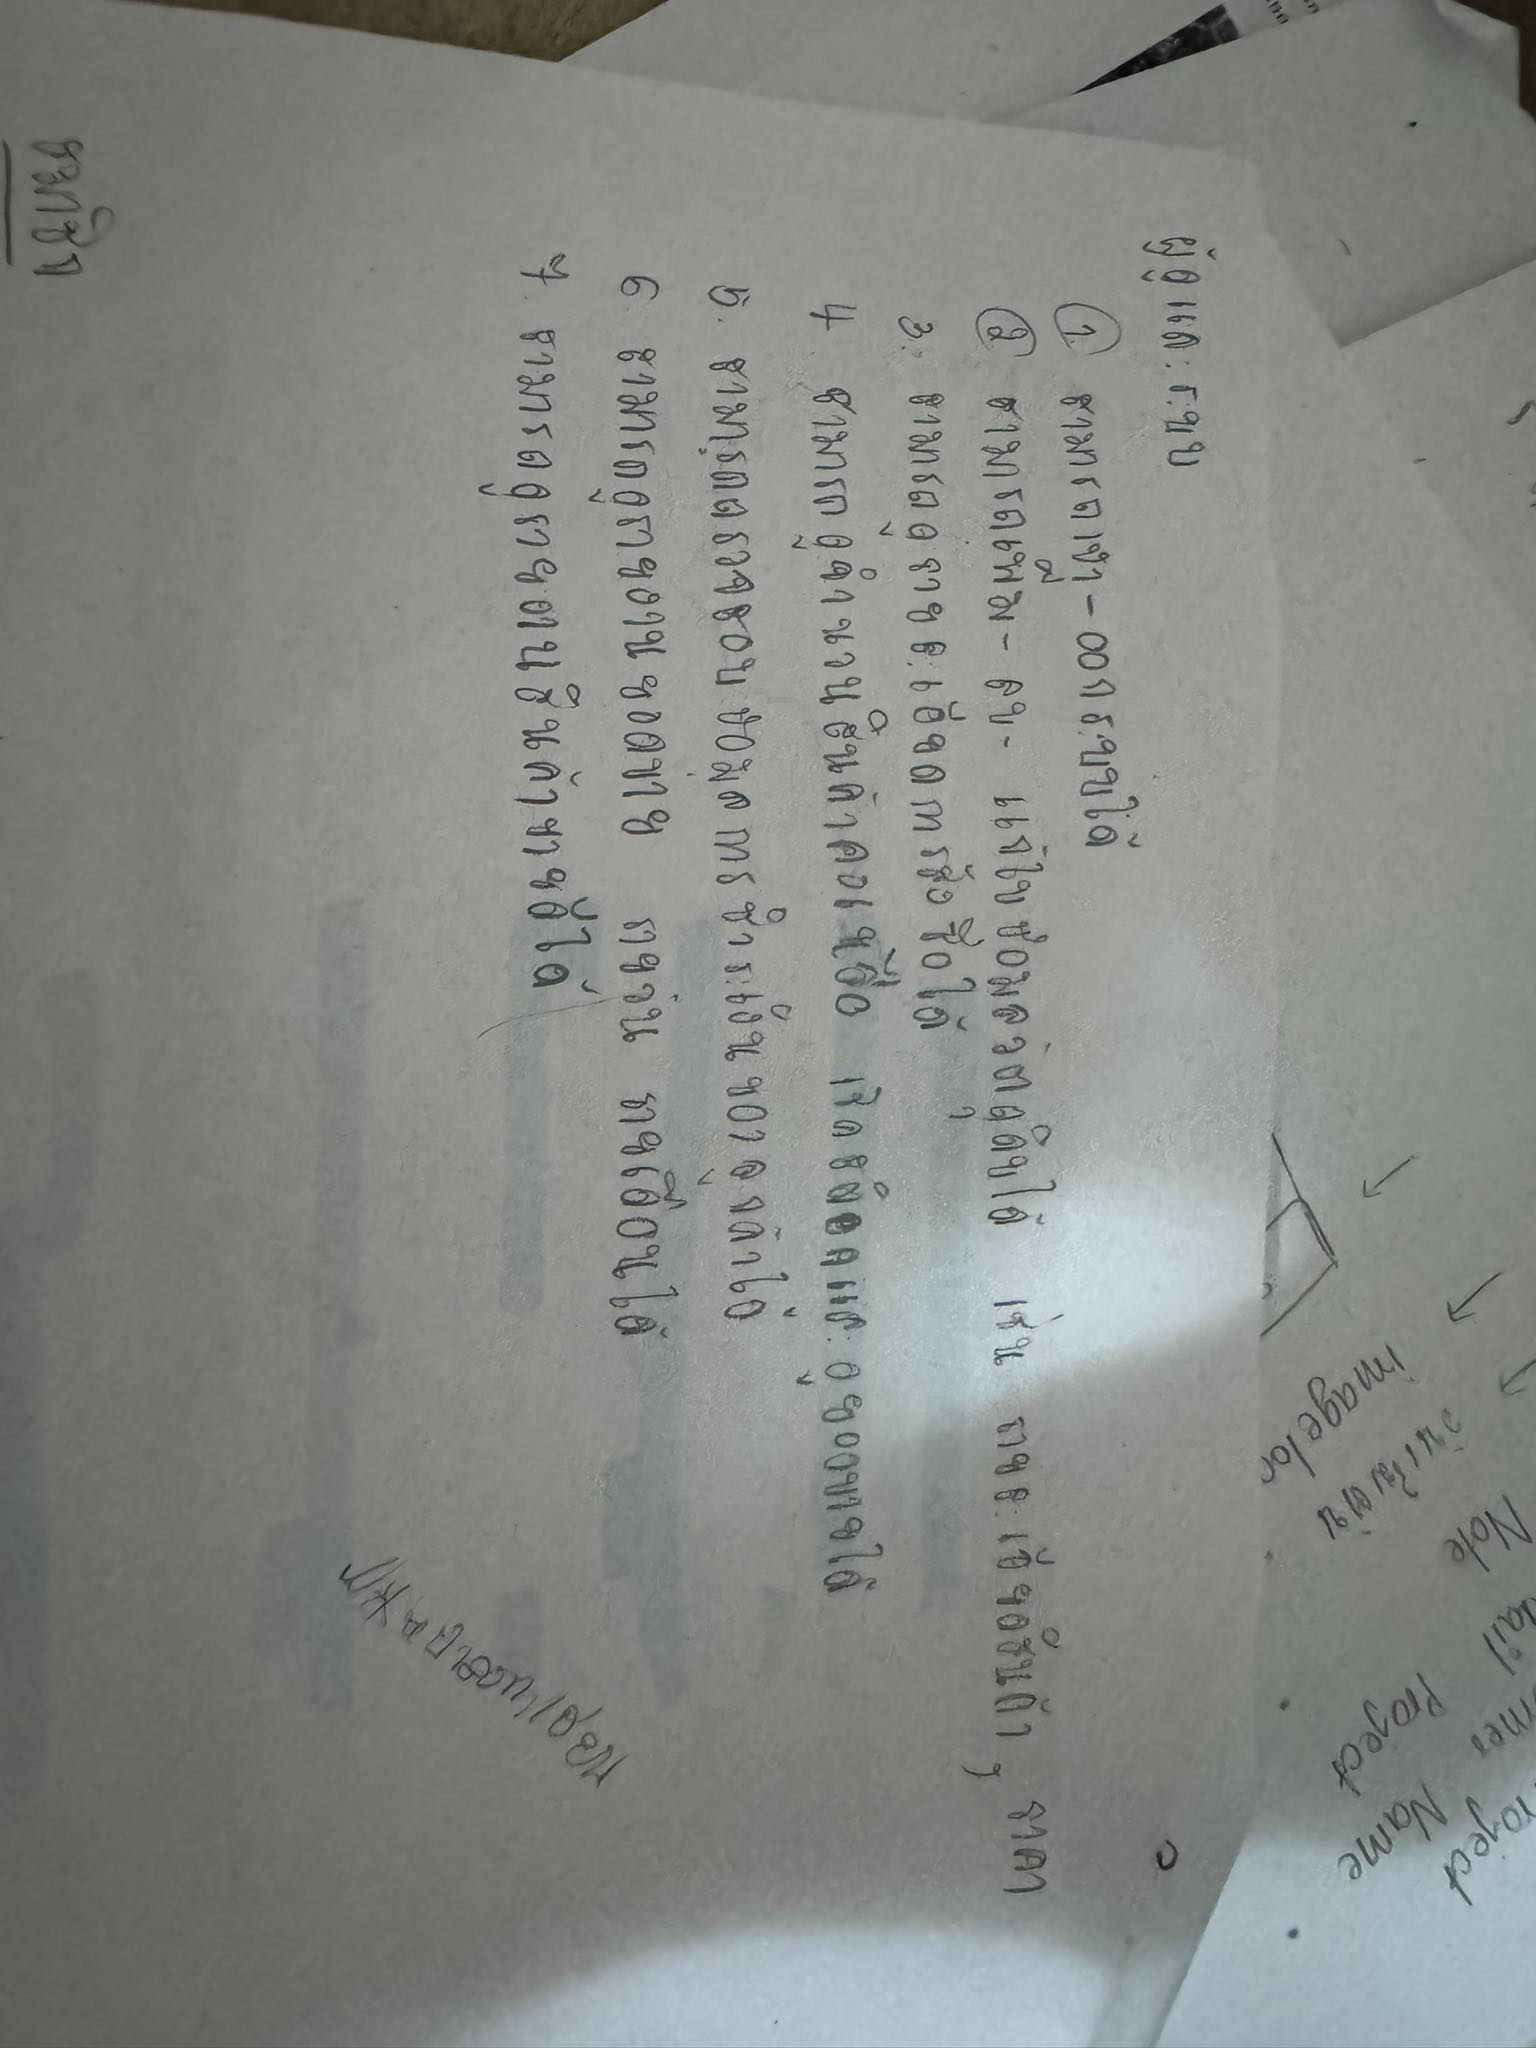 Project
Name
Project
Note
วันเริ่มต้น
ผู้ดูแลระบบ
① สามารถเข้า-ออกระบบได้
② สามารถเพิ่ม- ลบ- แก้ไขข้อมูลวัตถุดิบได้ เช่น รายละเอียดสินค้า , ราคา
3. สามารถดูรายละเอียดการสั่งซื้อได้
4 สามารถดูจำนวนสินค้าคงเหลือ เช็คสต๊อคและดูยอดขายได้
5. สามารถตรวจสอบข้อมูลการชำระเงินของลูกค้าได้
6 สามารถดูรายงานยอดขาย รายวัน รายเดือนได้
7. สามารถดูรายงานสินค้าขายดีได้
สมาชิก